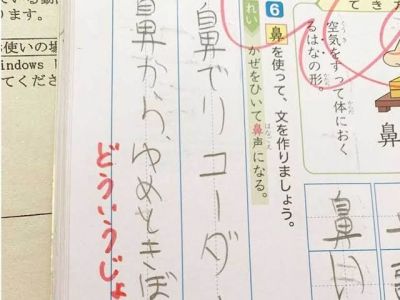 てき
空気をすって体におく
るはなの形。
鼻
6
鼻を使って、文を作りましょう。
れい
かぜをひいて鼻声になる。
はなごえ
鼻でリコーダー
鼻から、ゆめときぼ
どういうじょ
鼻
ている動
ります。
使いの場
indows
てくださ